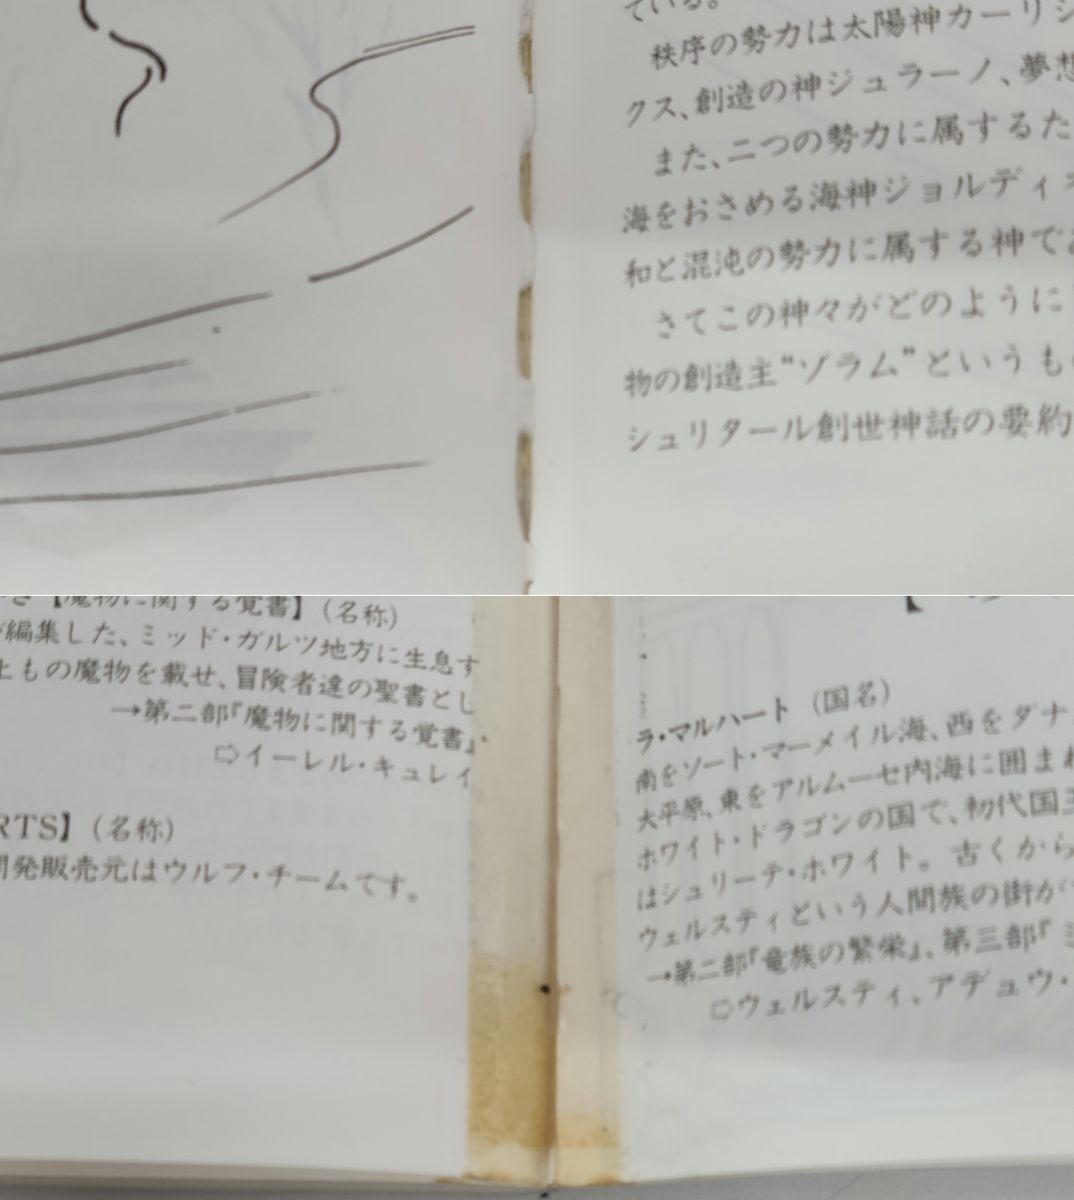 ている。
秩序の勢力は太陽神カーリ
クス、創造の神ジュラーノ、夢想
また、二つの勢力に属するた
海をおさめる海神ジョルディ
和と混沌の勢力に属する神で
さてこの神々がどのように
物の創造主“ゾラム”というも
シュリタール創世神話の要約
【魔物に関する覚書】（名称）
編集した、ミッド・ガルツ地方に生息す
上もの魔物を載せ、冒険者達の聖書とし
→第二部『魔物に関する覚書』
⇨イーレル・キュレイ
RTS】（名称）
開発販売元はウルフ・チームです。
ラ・マルハート （国名）
南をソート・マーメイル海、西をダナ
大平原、東をアルムーセ内海に囲まれ
ホワイト・ドラゴンの国で、初代国王
はシュリーテ・ホワイト。古くから
ウェルスティという人間族の街が
→第二部『竜族の繁栄』、第三部『ミ
⇨ウェルスティ、アデュウ・